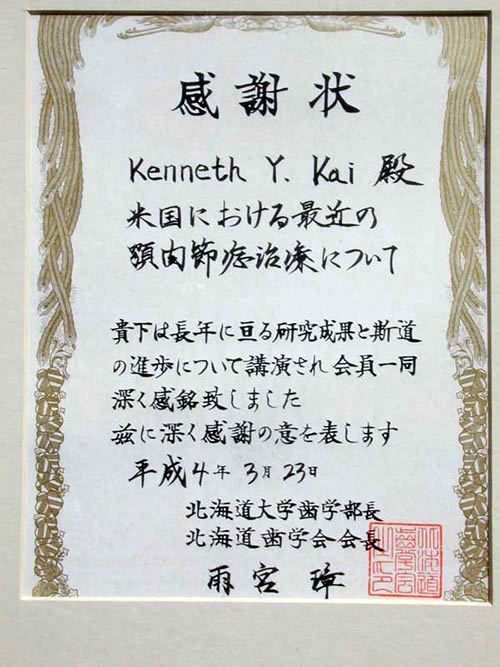 感謝状
Kenneth Y. Kai 殿
米国における最近の
顎関節症治療について
貴下は長年に亘る研究成果と斯道
の進歩について講演され会員一同
深く感銘致しました
茲に深く感謝の意を表します
平成4年3月23日
北海道大学歯学部長
北海道歯学会会長
雨宮 璋